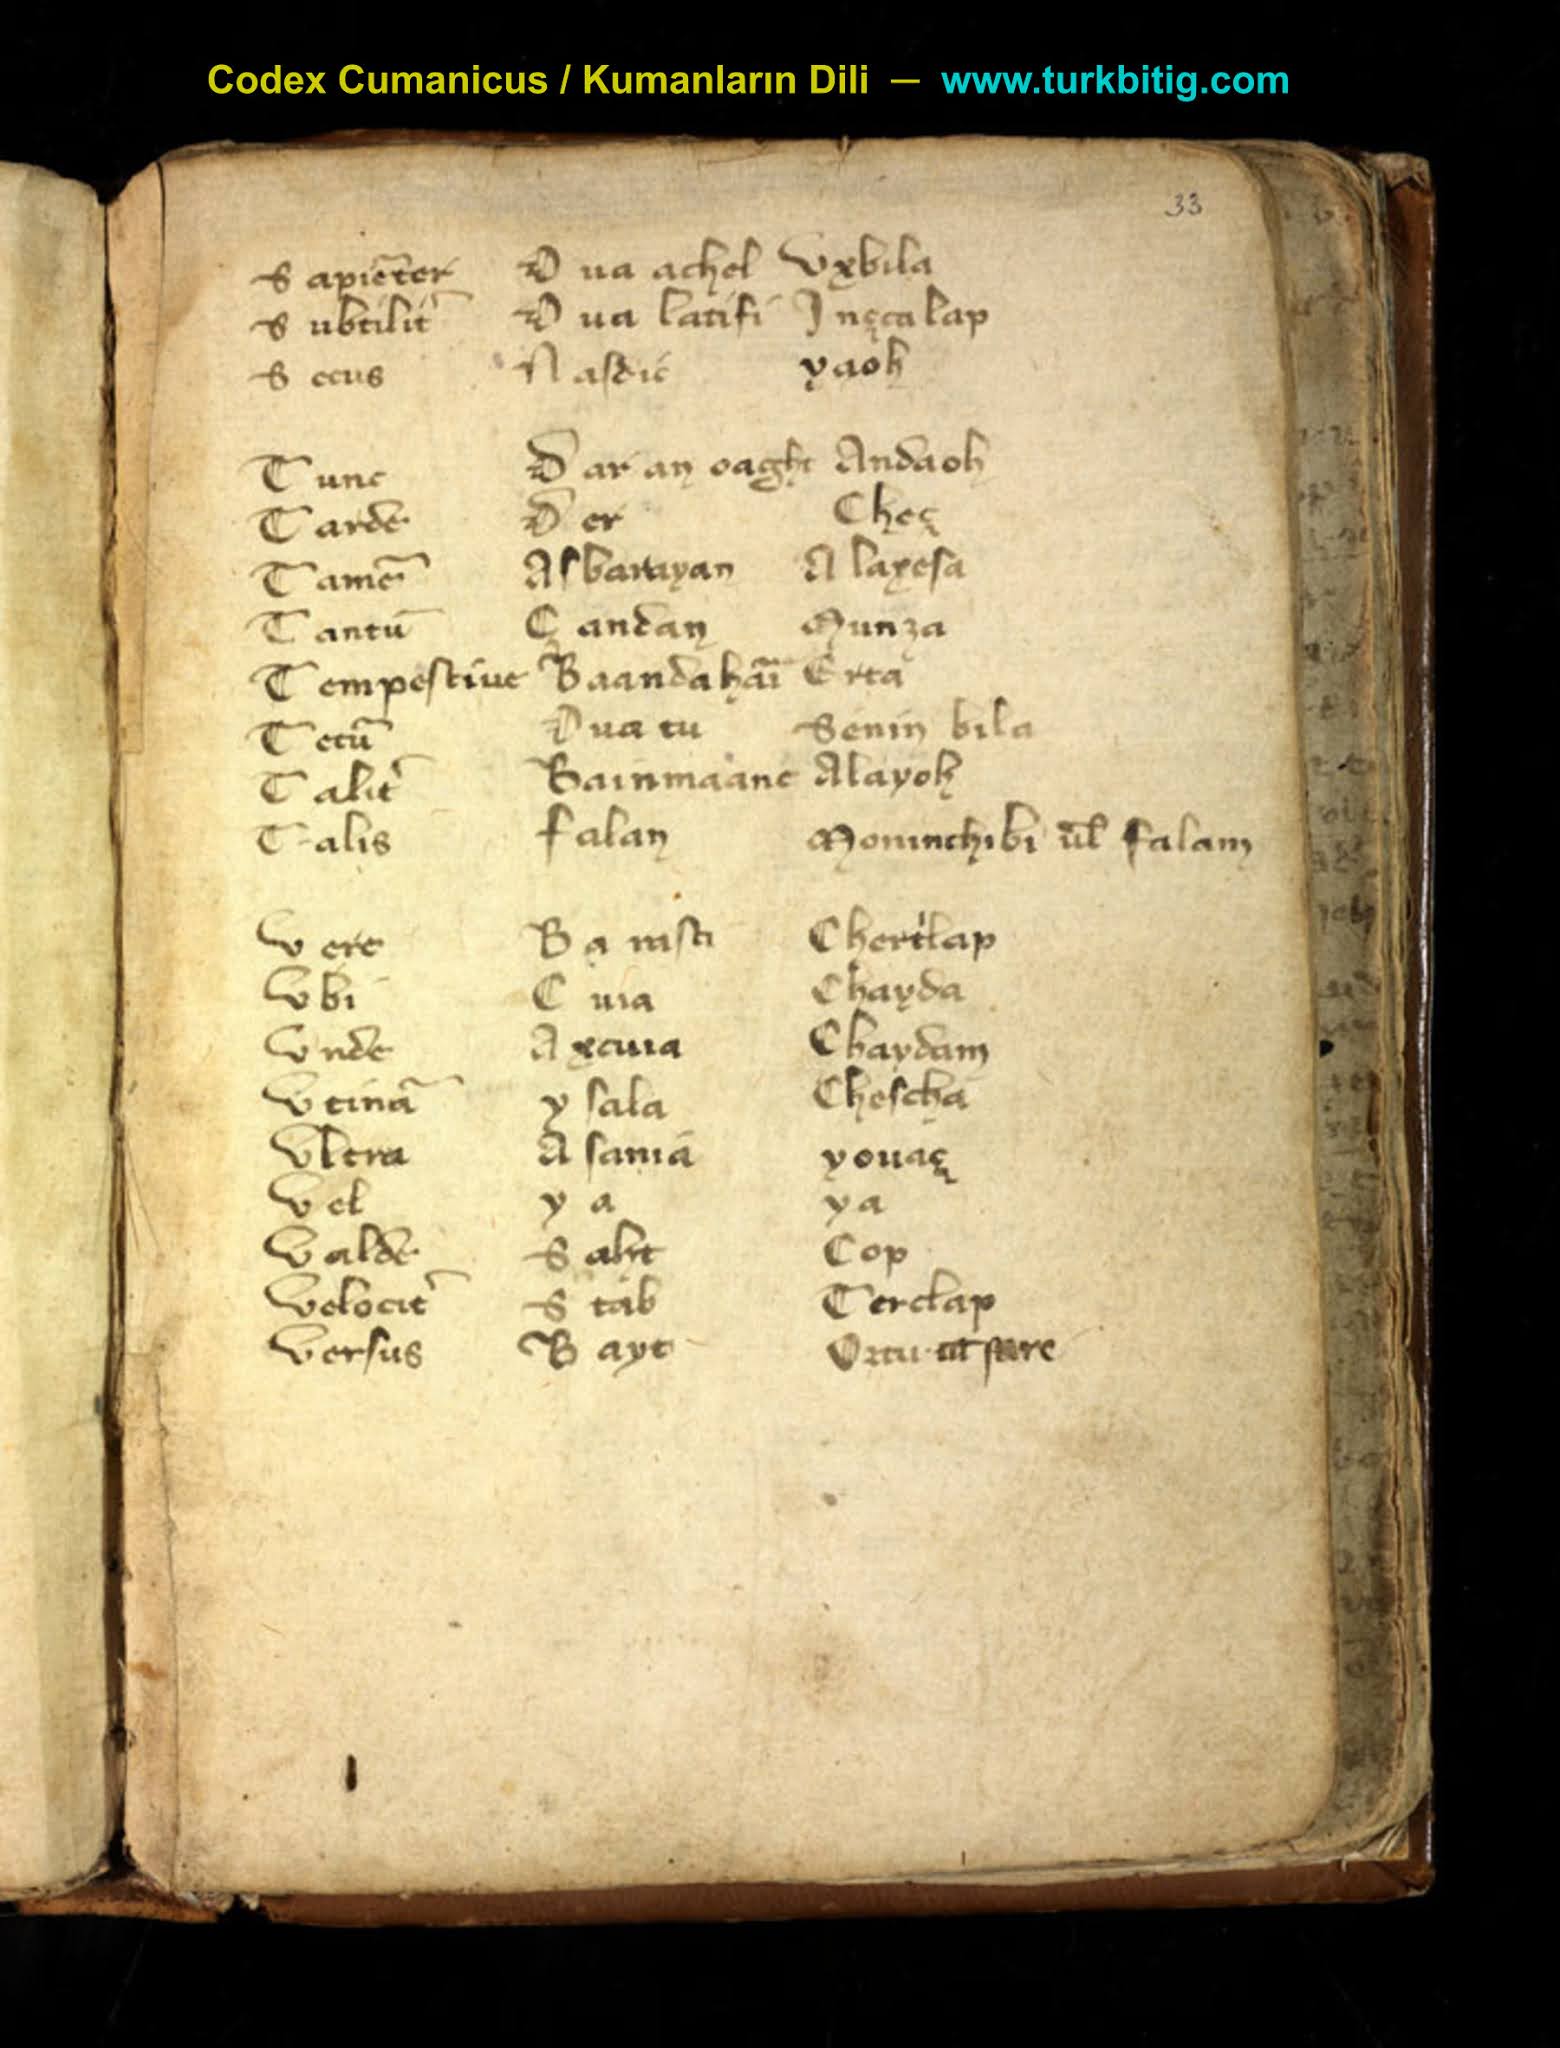 Codex Cumanicus / Kumanların Dili — www.turkbitig.com
33
Sapiẽter Dua achel Vxbila
Subtilit̃ Dua latifi Inęcalap
Secus Nasdic yaoh
Tunc Dar an oaght Andaoh
Tarde Der Cheç
Tamẽ Asbarayan Alayesa
Tantũ Candan Munza
Tempestiue Baandahãi Erta
Tecũ Dua tu Senin bila
Talit̃ Bainmaanc Alayoh
Talis falan Moninchibi ul̃ falam
Vere Ba rasti Chertlap
Vbi Cuia Chayda
Vnde Axcuia Chaydam
Vtinã ysala Chescha
Vltra Asaniã youaç
Vel ya ya
Valde Saht Cop
Velocit̃ Stab Terclap
Versus Bayt Ortu